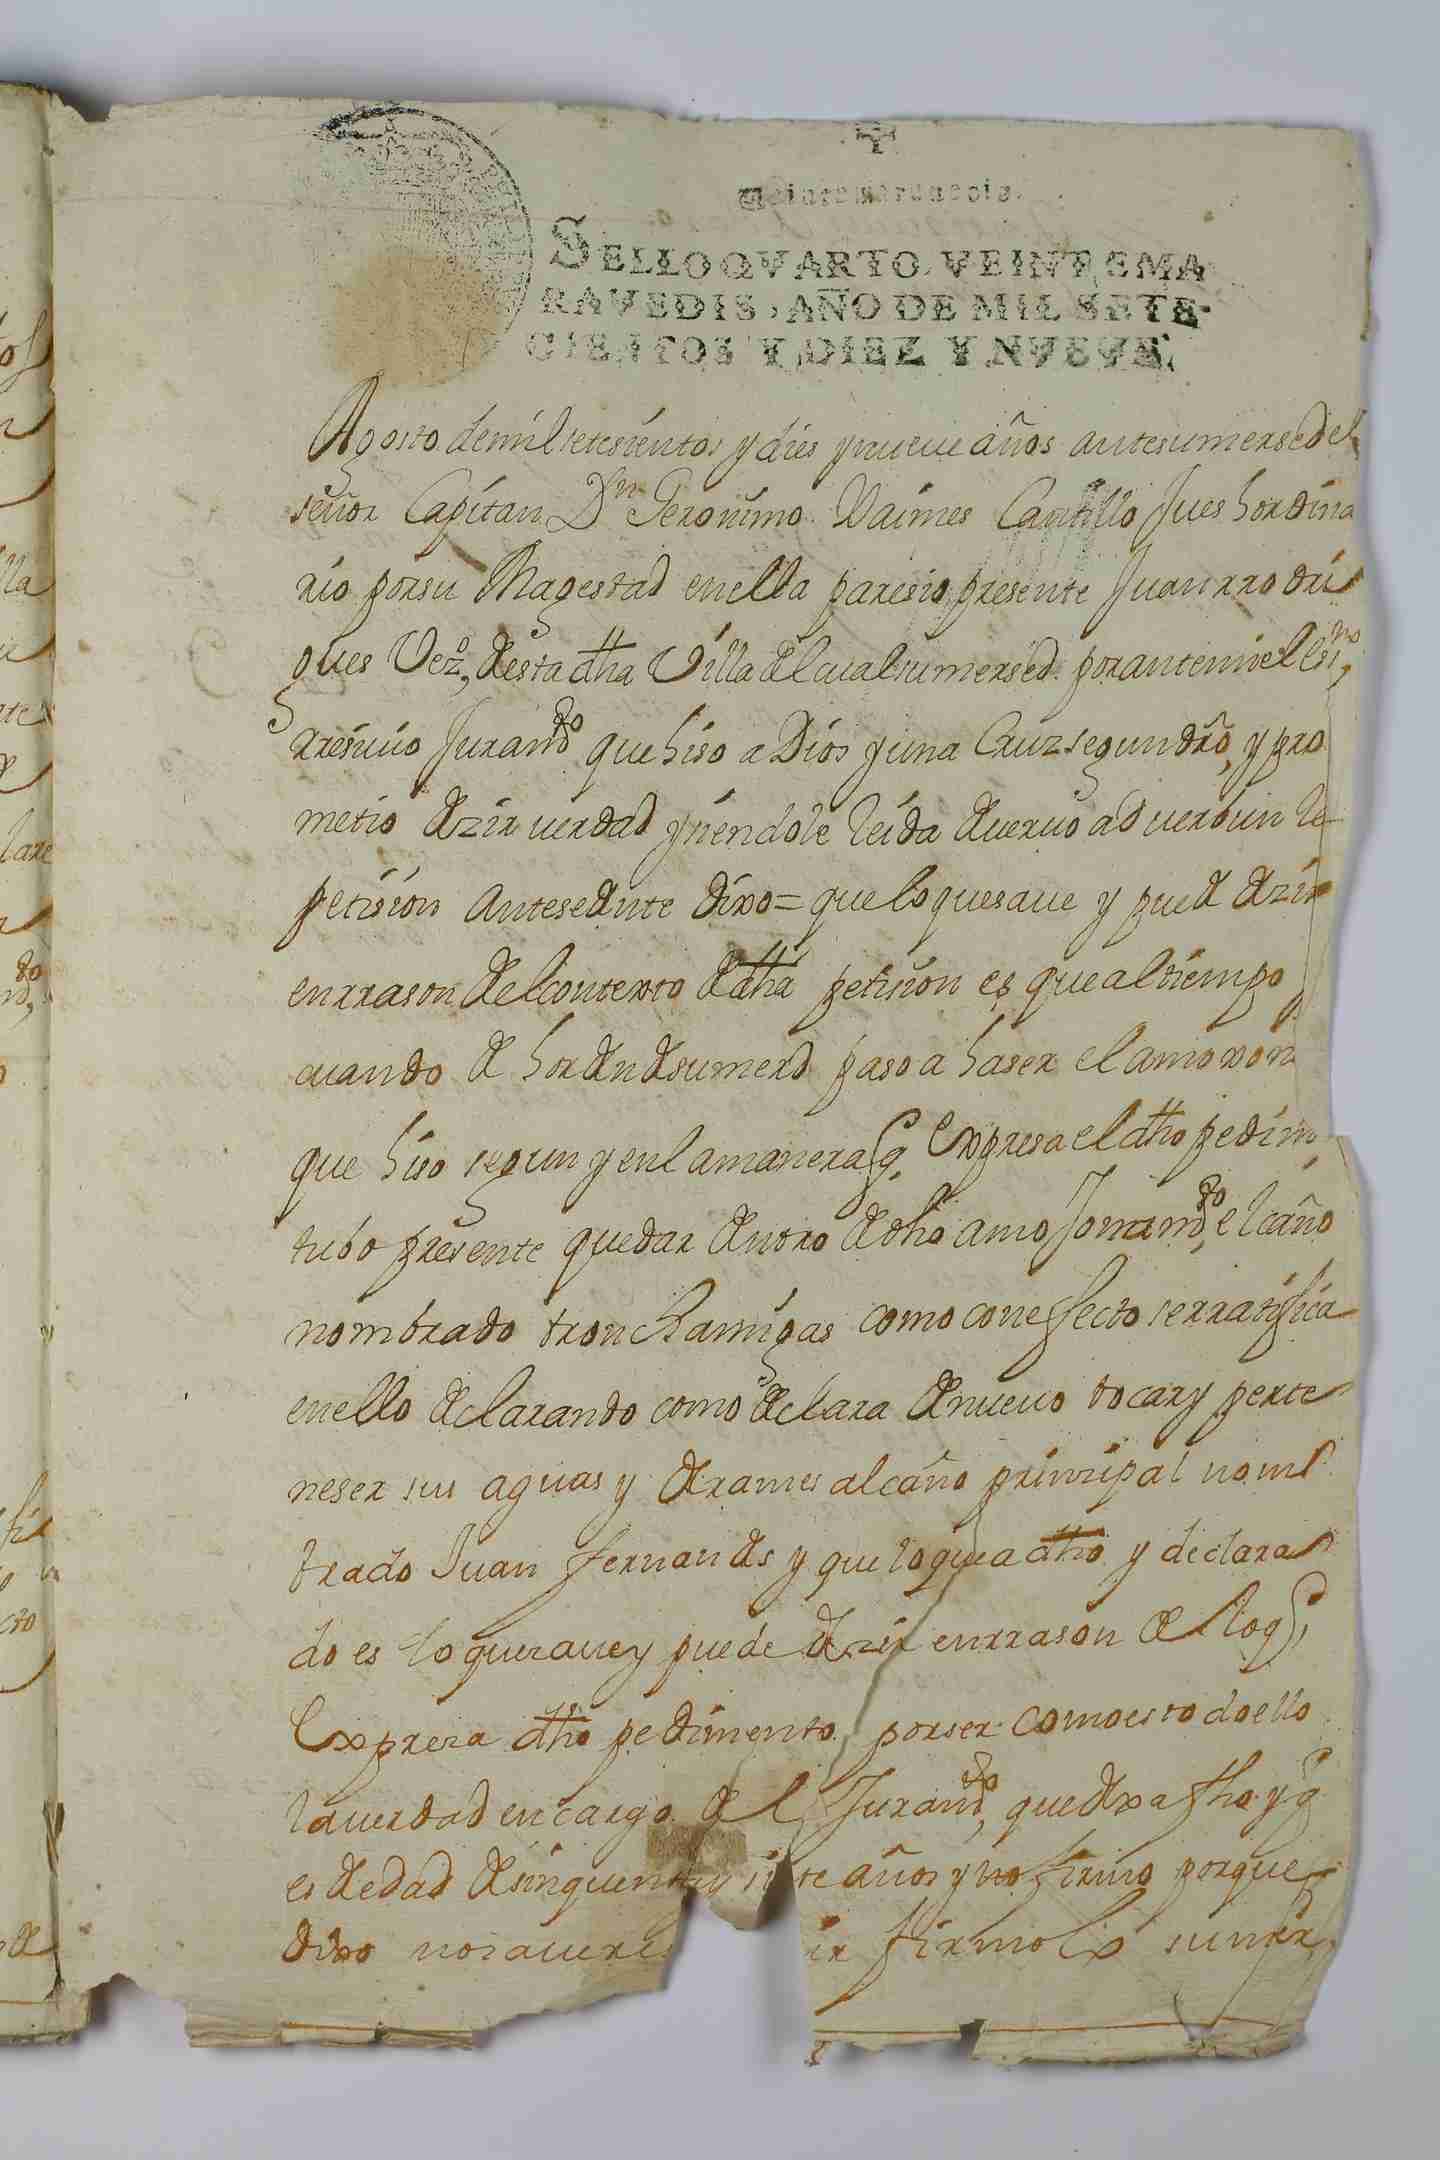 Veinte maravedis.
SELLO QVARTO, VEINTE MA
RAVEDIS, AÑO DE MIL SETE
CIENTOS Y DIEZ Y NVEVE.
Agosto de mil setesientos y dies y nueve años ante su mersed el
señor Capitan Dn Geronimo Vaimes Cantillo Jues hordina
rio por su Magestad en ella paresio presente Juan rrodri
gues Vezo desta dha Villa del cual su mersed por ante mi el Essno
rresiuio Juramdo que hiso a Dios y una Cruz segun dro, y pro
metio dezir verdad y siendole leida de veruo ad verbun la
petision antesedente dixo = que lo que saue y puede dezir
en rrason del contexto de dha petision es que al tiempo
cuando de horden de su merd paso a haser el amoxon
que hiso segun y en la manera q expresa el dho pedim
tubo presente quedar dentro de dho amojonamdo, el caño
nombrado tronchamigas como con efecto se rratifica
en ello declarando como declara de nueuo tocar y perte
neser sus aguas y derrames al caño prinsipal nom
brado Juan fernandes y que lo que a dho y declara
do es lo que saue y puede dezir en rrason de lo q
Expresa dho pedimento por ser como es todo ello
la verdad en cargo del Juramdo, que dexa fho y q
es de edad de sinquenta y siete años y no firmo porque
dixo no saue firmolo su mrd